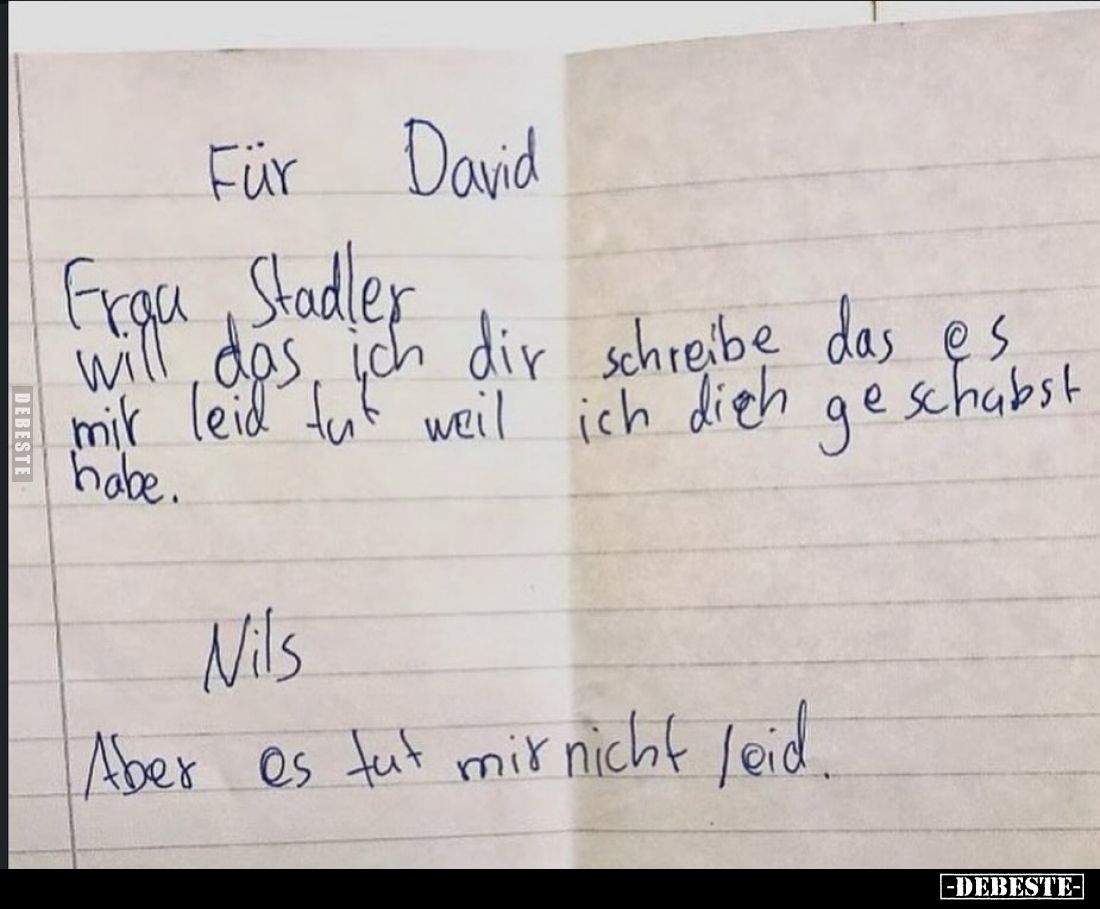 Für David
Frau Stadler
will das ich dir schreibe das es
mir leid tut weil ich dich geschubst
habe.
Nils
Aber es tut mir nicht leid.
DEBESTE
-DEBESTE-